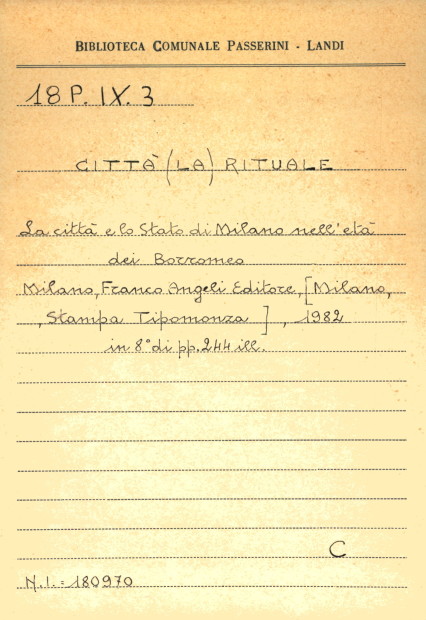 BIBLIOTECA COMUNALE PASSERINI - LANDI
18 P. IX. 3
CITTÀ (LA) RITUALE
La città e lo Stato di Milano nell'età
dei Borromeo
Milano, Franco Angeli Editore, [Milano,
, Stampa Tipomonza ] , 1982
in 8° di pp. 244 ill.
C
N.I. = 180970